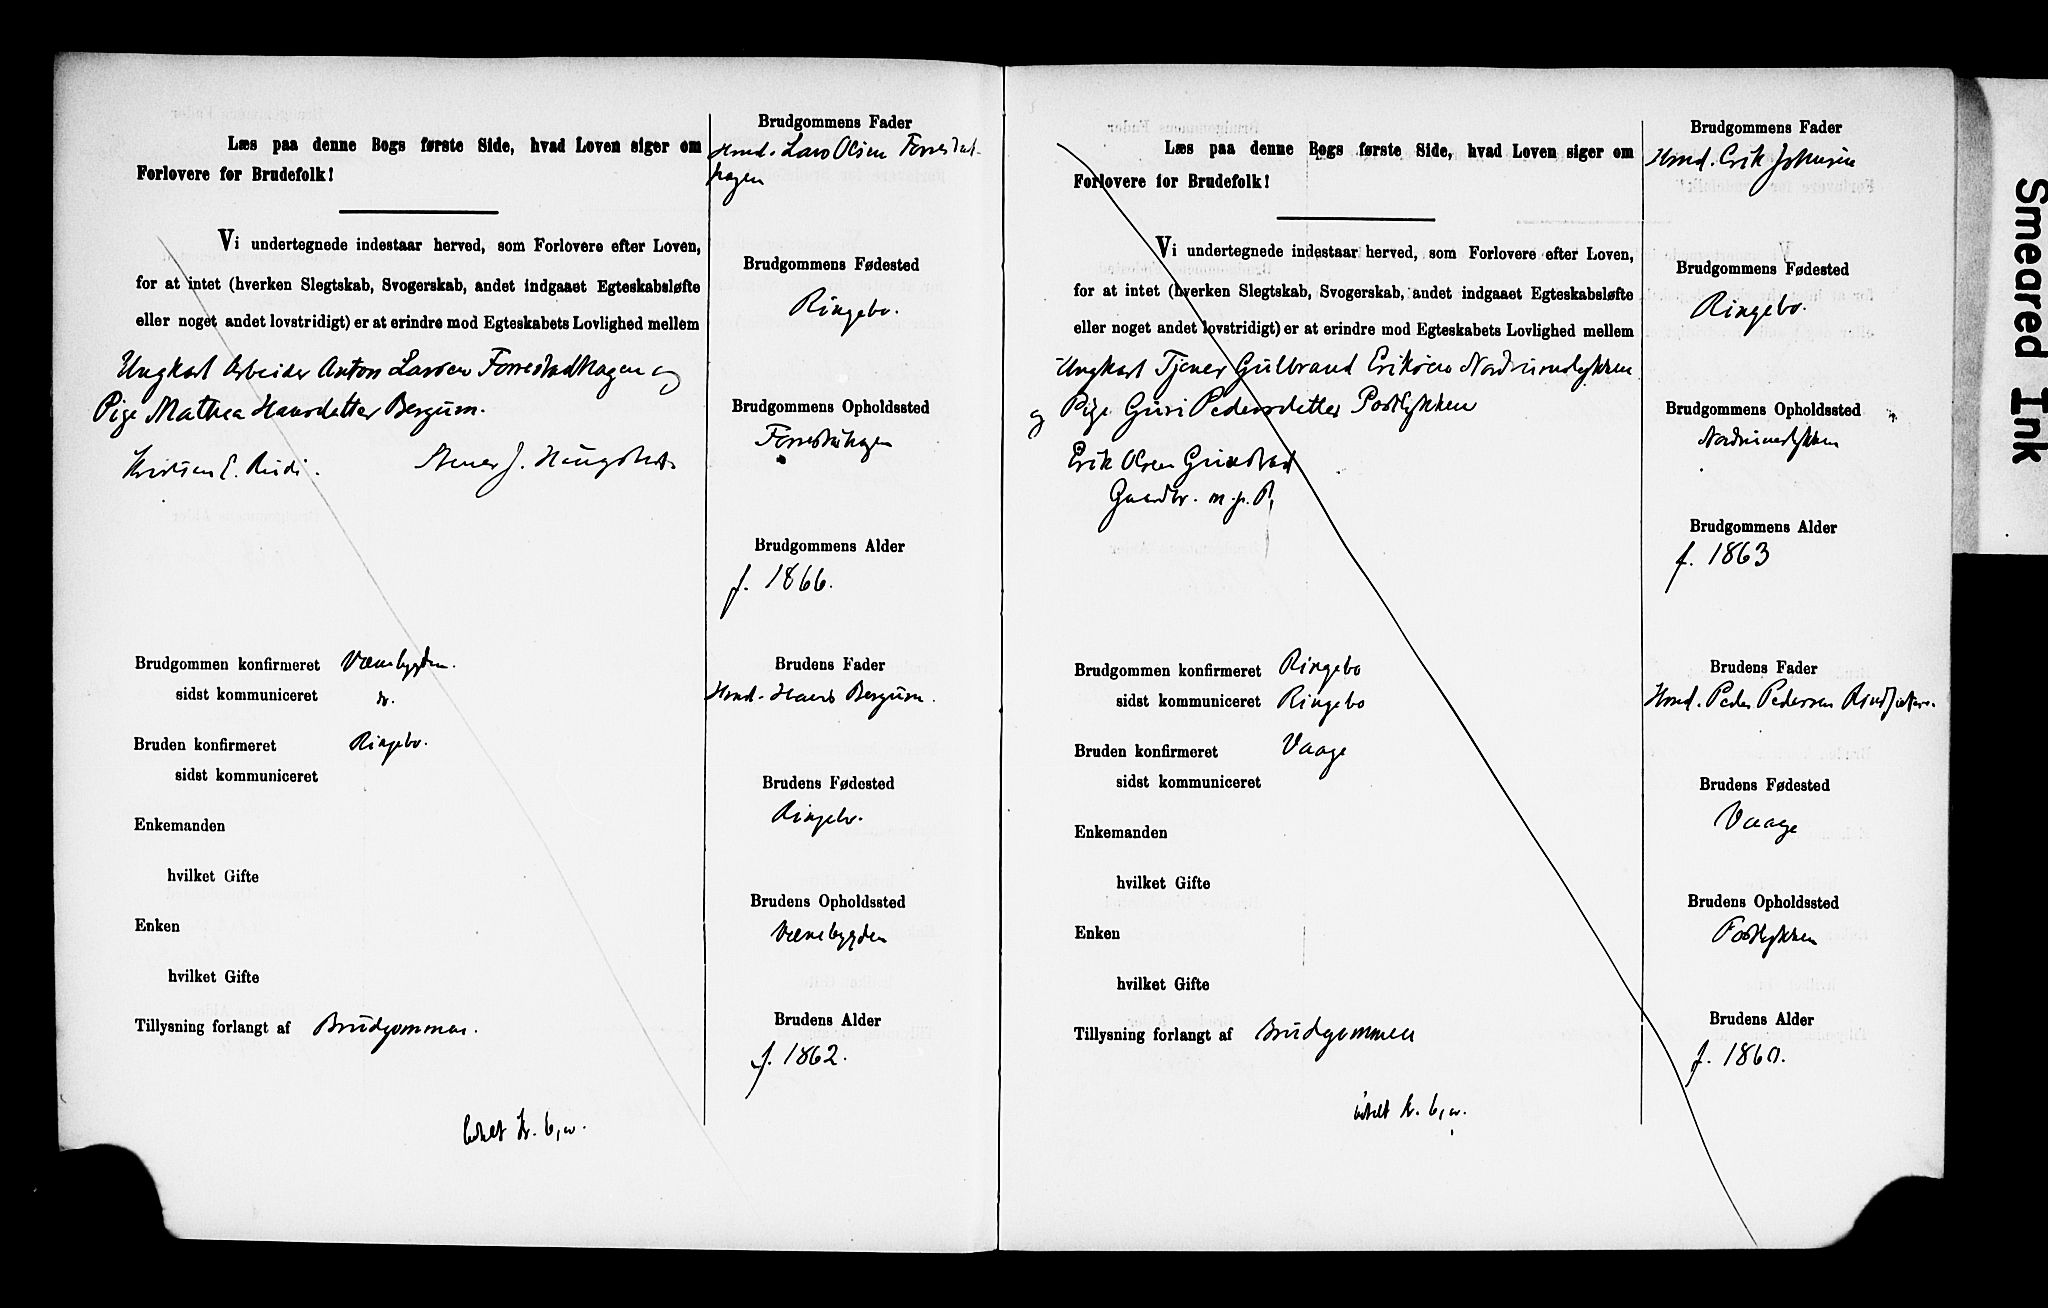 Læs paa denne Bogs første Side, hvad Loven siger om
Forlovere for Brudefolk!
Vi undertegnede indestaar herved, som Forlovere efter Loven,
for at intet (hverken Slegtskab, Svogerskab, andet indgaaet Egteskabsløfte
eller noget andet lovstridigt) er at erindre mod Egteskabets Lovlighed mellem
Ungkarl Arbeider Anton Larsen Forrestadhagen og
Pige Mathea Hansdatter Bergum.
E. Rudi.
J. Haugstad
Brudgommen konfirmeret Venebygden.
sidst kommuniceret do.
Bruden konfirmeret Ringebo.
sidst kommuniceret
Enkemanden
hvilket Gifte
Enken
hvilket Gifte
Tillysning forlangt af Brudgommen.
betalt kr. 6,00.
Brudgommens Fader
Hmd. Lars Olsen Forrestad-
hagen
Brudgommens Fødested
Ringebo.
Brudgommens Opholdssted
Forrestadhagen
Brudgommens Alder
f. 1866.
Brudens Fader
Hmd. Hans Bergum.
Brudens Fødested
Ringebo.
Brudens Opholdssted
Venebygden
Brudens Alder
f. 1862.
Læs paa denne Bogs første Side, hvad Loven siger om
Forlovere for Brudefolk!
Vi undertegnede indestaar herved, som Forlovere efter Loven,
for at intet (hverken Slegtskab, Svogerskab, andet indgaaet Egteskabsløfte
eller noget andet lovstridigt) er at erindre mod Egteskabets Lovlighed mellem
Ungkarl Tjener Gulbrand Eriksen Nordrumslykken
og Pige Guri Pedersdatter Postlykken
Erik Olsen Grinstad
Gaardbr. m. p. P.
Brudgommen konfirmeret Ringebo
sidst kommuniceret Ringebo
Bruden konfirmeret Vaage
sidst kommuniceret
Enkemanden
hvilket Gifte
Enken
hvilket Gifte
Tillysning forlangt af Brudgommen
betalt kr. 6,00.
Brudgommens Fader
Hmd. Erik Johnsen
Brudgommens Fødested
Ringebo.
Brudgommens Opholdssted
Nordrumslykken
Brudgommens Alder
f. 1863
Brudens Fader
Hmd. Peder Pedersen
Brudens Fødested
Vaage
Brudens Opholdssted
Postlykken
Brudens Alder
f. 1860.
Smeared Ink